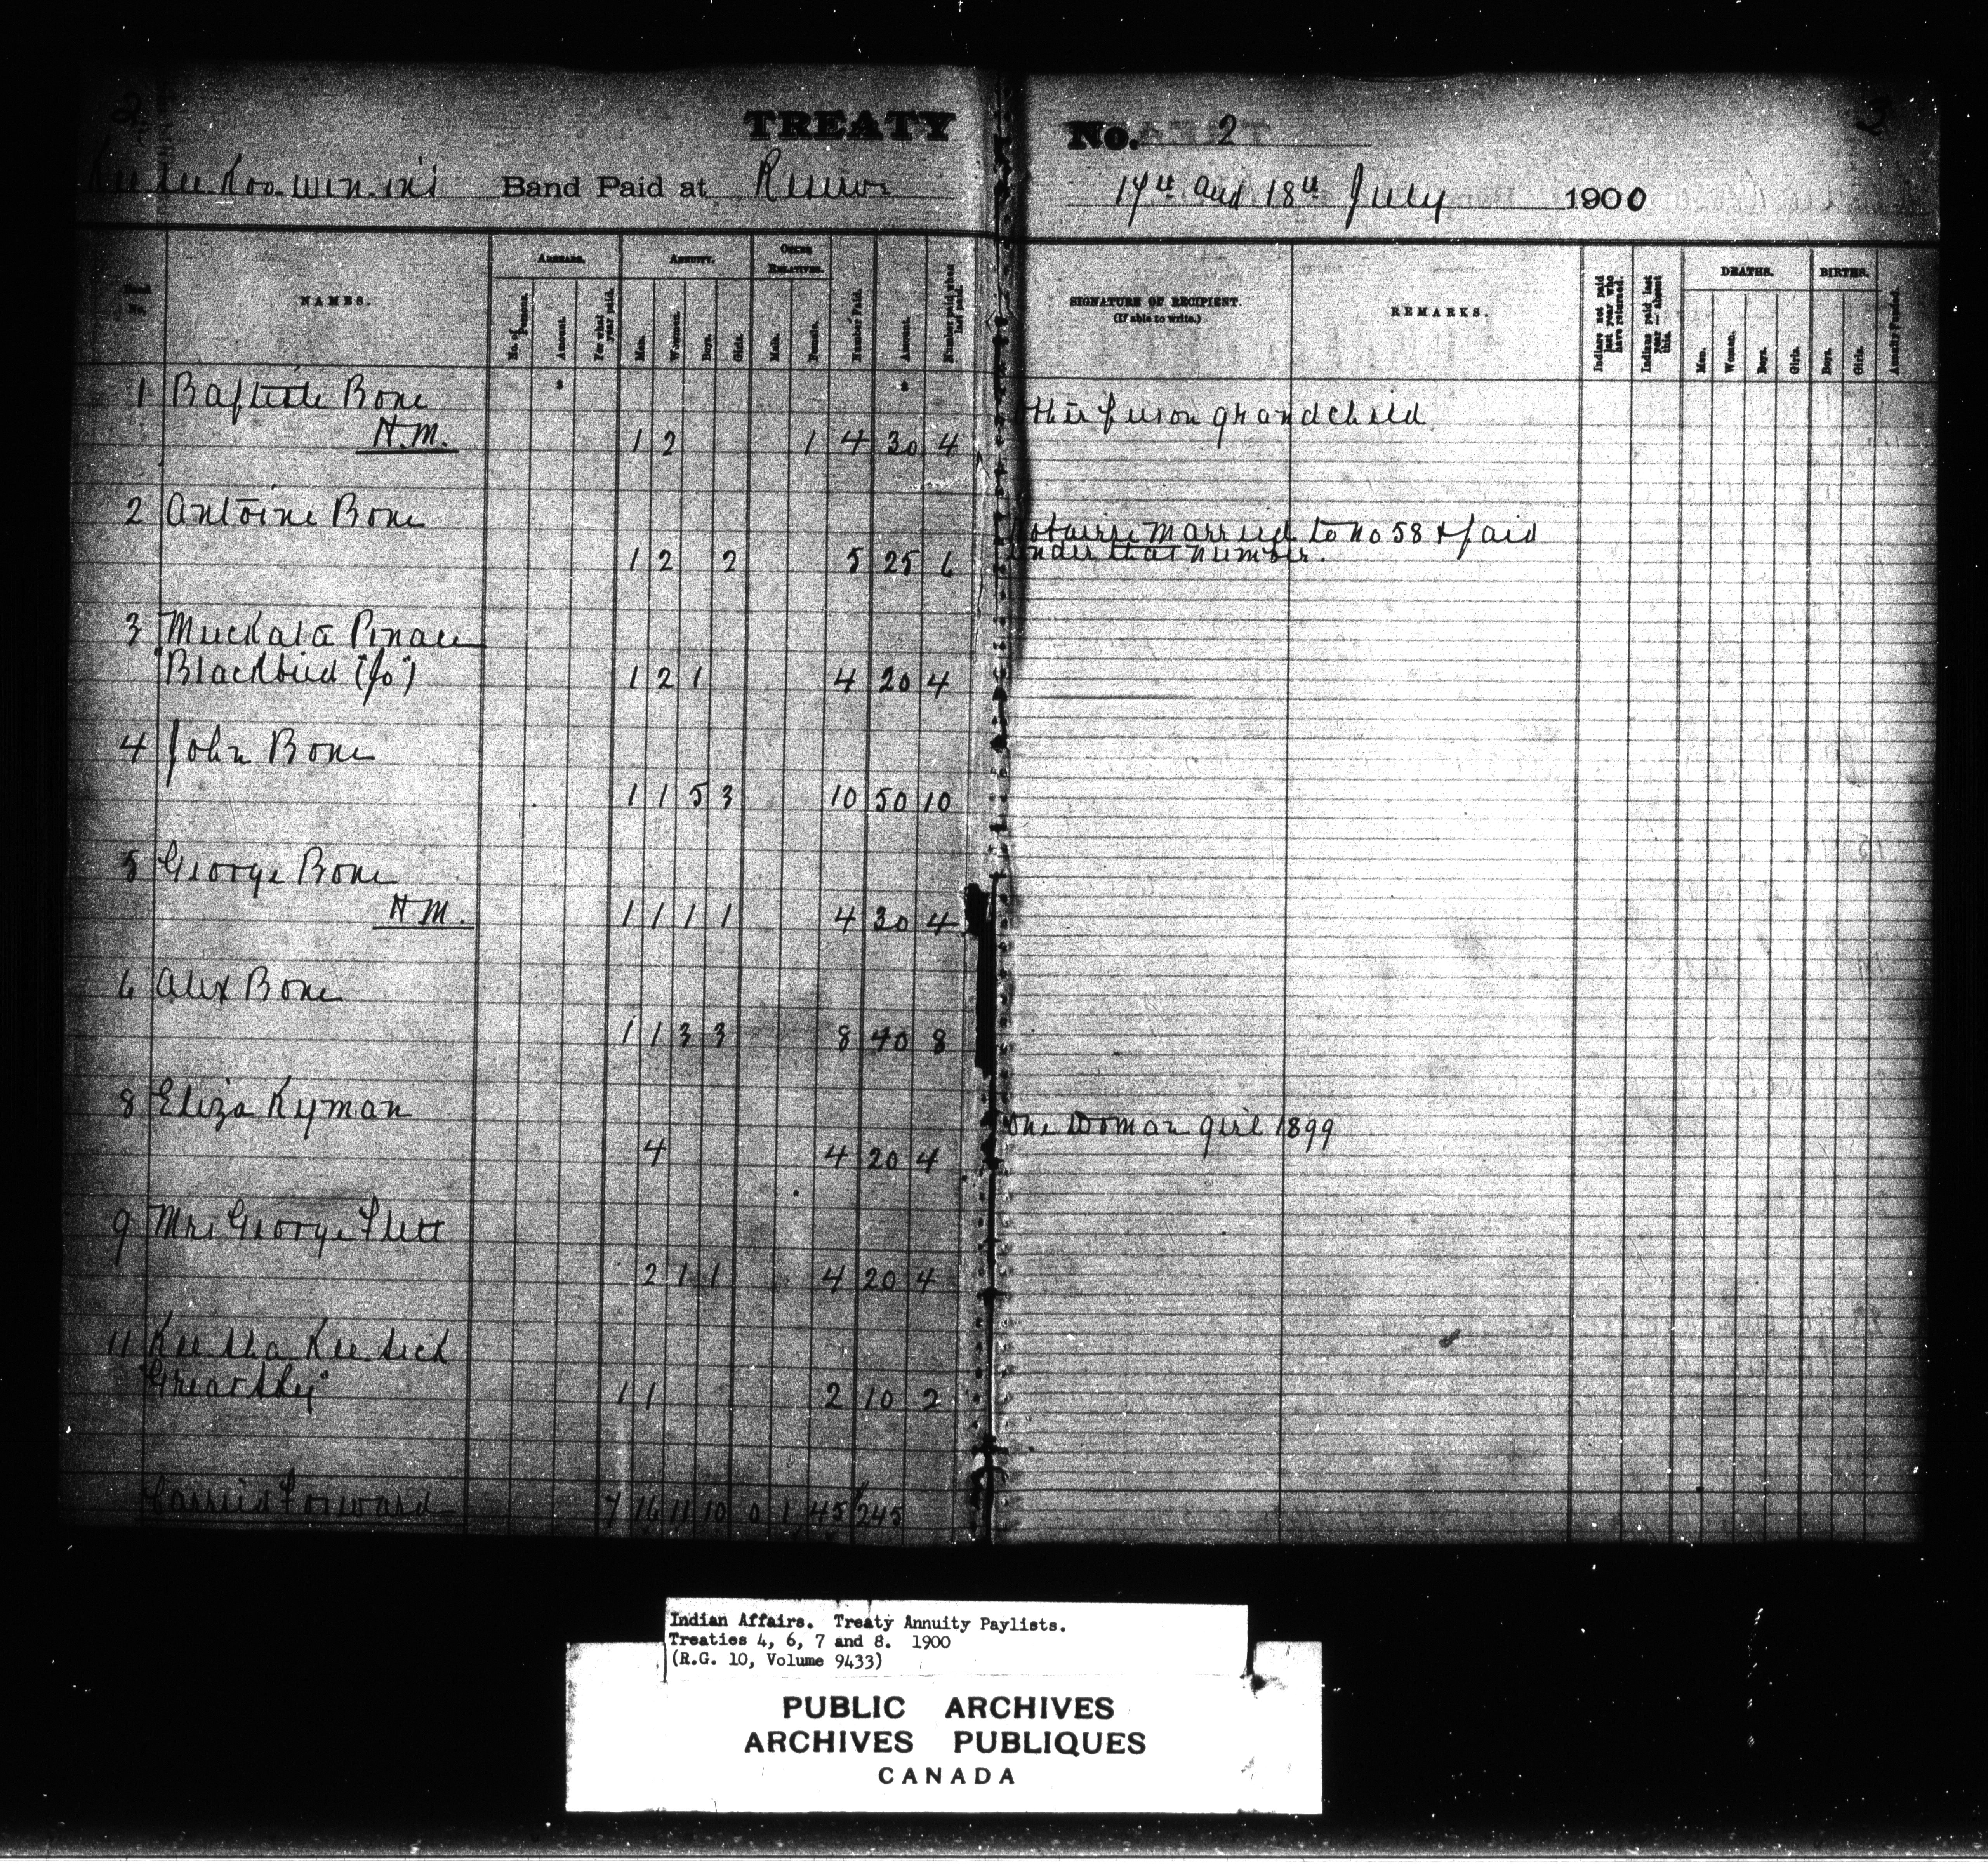 2 3
TREATY No. 2
Kee see Koo-win-in's Band Paid at Reserve 17th and 18th July 1900
No.
NAMES.
ARREARS.
No. of Persons.
Amount.
For what year paid.
ANNUITY.
Men.
Women.
Boys.
Girls.
OTHER RELATIVES.
Male.
Female.
Number Paid.
Amount.
Number paid when last paid.
SIGNATURE OF RECIPIENT.
(If able to write.)
REMARKS.
Indians not paid last year who have returned.
Indians paid last year — absent this.
DEATHS.
Men.
Women.
Boys.
Girls.
BIRTHS.
Boys.
Girls.
Annuity Funded.
1 Baptiste Bone other person grandchild
H.M. 1 2 1 4 30 4
2 Antoine Bone married to No 58 & paid
under that number.
1 2 2 5 25 6
3 Muckata Penace
"Blackbird (Jo)" 1 2 1 4 20 4
4 John Bone
1 1 5 3 10 50 10
5 George Bone
H M. 1 1 1 1 4 30 4
6 Alex Bone
1 1 3 3 8 40 8
8 Eliza Kyman One Woman girl 1899
4 4 20 4
9 Mrs George Flett
2 1 1 4 20 4
11 Kee sha Kee sick
"Great Sky" 1 1 2 10 2
Carried Forward 7 16 11 10 0 1 45 245
Indian Affairs. Treaty Annuity Paylists.
Treaties 4, 6, 7 and 8. 1900
(R.G. 10, Volume 9433)
PUBLIC ARCHIVES
ARCHIVES PUBLIQUES
CANADA